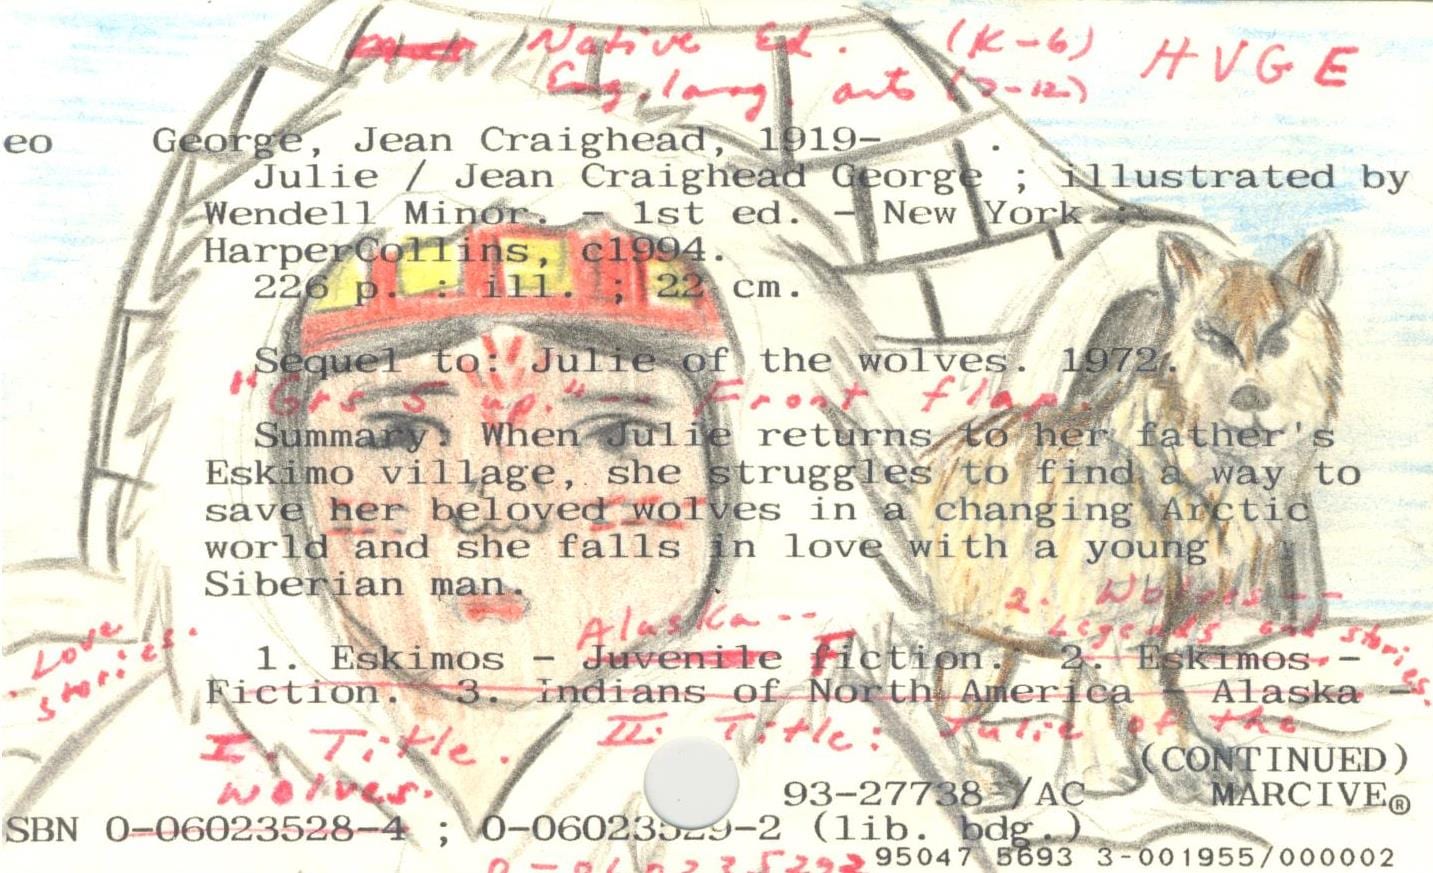 Native Ed. (K-6) HVGE
Eng. lang. arts (7-12)
eo George, Jean Craighead, 1919- .
Julie / Jean Craighead George ; illustrated by
Wendell Minor. - 1st ed. - New York :
HarperCollins, c1994.
226 p. : ill. ; 22 cm.
Sequel to: Julie of the wolves. 1972.
"Grs 5 up." -- Front flap.
Summary: When Julie returns to her father's
Eskimo village, she struggles to find a way to
save her beloved wolves in a changing Arctic
world and she falls in love with a young
Siberian man.
2. Wolves--
Legends and stories.
Alaska--
Love
stories.
1. Eskimos - Juvenile Fiction. 2. Eskimos -
Fiction. 3. Indians of North America - Alaska -
I. Title. II. Title: Julie of the
wolves.
(CONTINUED)
93-27738 /AC MARCIVE®
SBN 0-06023528-4 ; 0-06023529-2 (lib. bdg.)
95047 5693 3-001955/000002